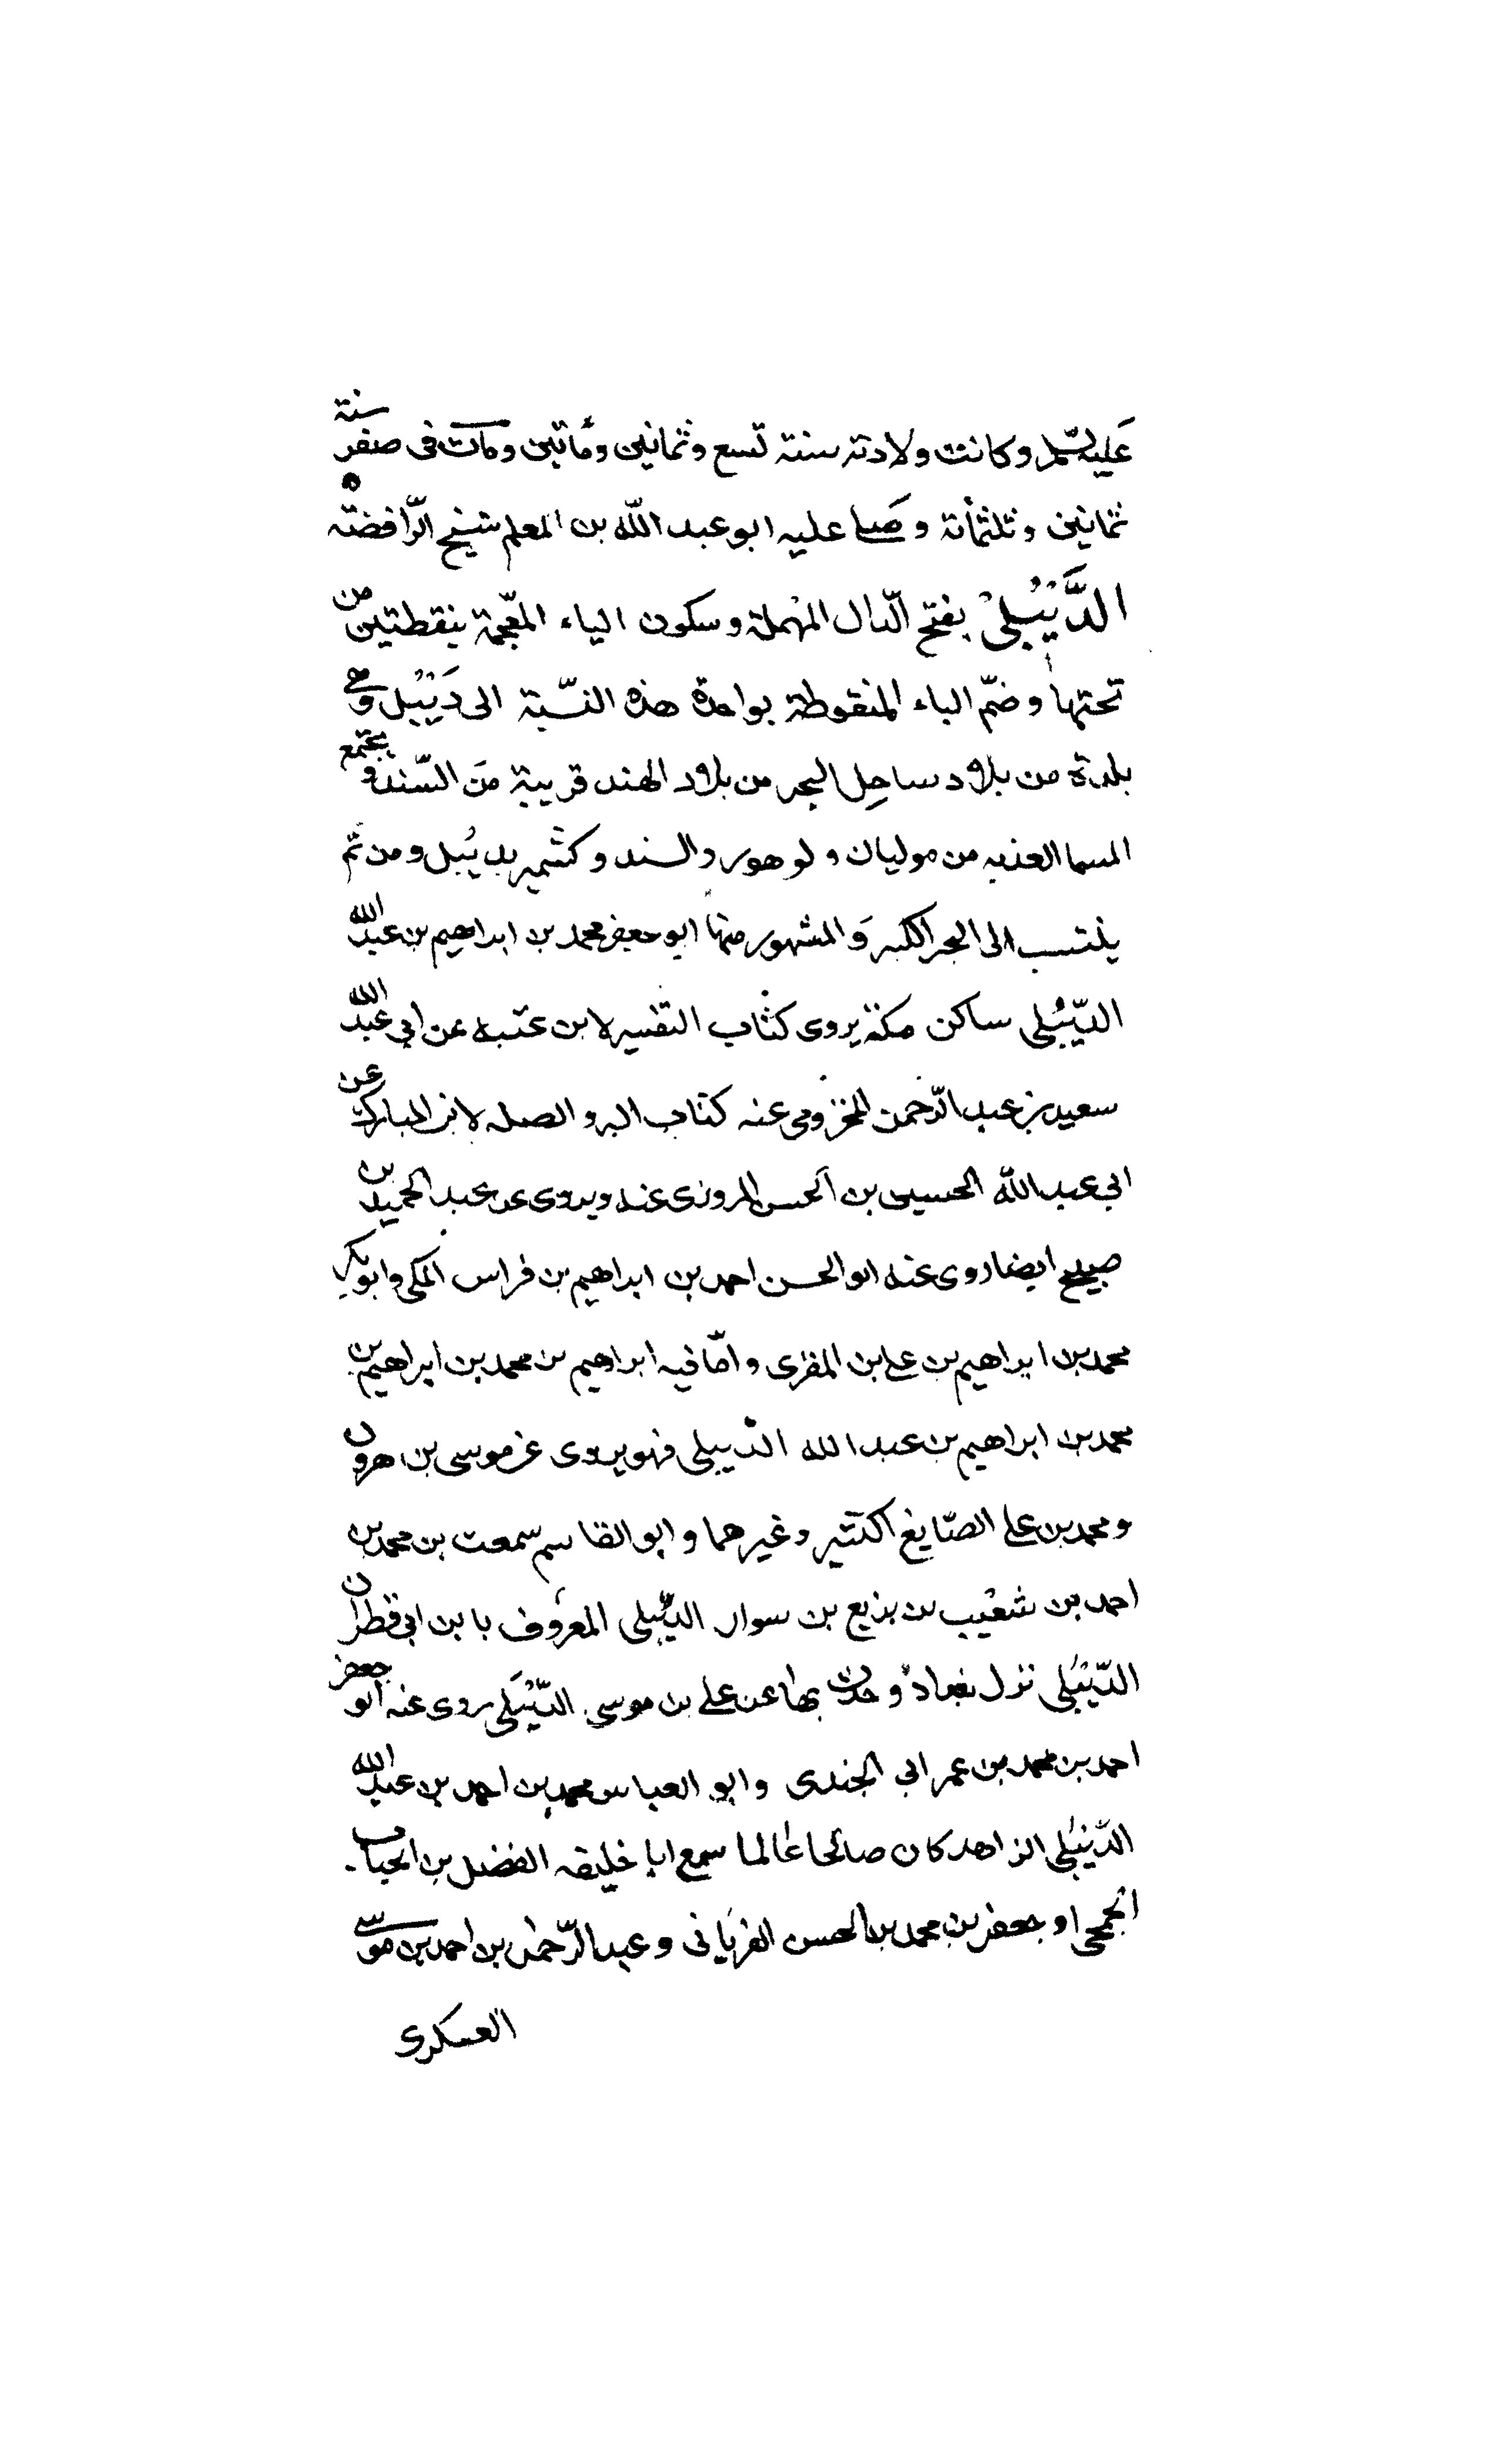 عليه السّلم وكانت ولادته سنة تسع وثمانين ومأتين ومات فى صفر سنة
ثمانين وثلثمأة وصلى عليه ابو عبد اللّه بن المعلم شيخ الرّافضة
الدَّيْبُلىْ بفتح الدّال المهملة وسكون الياء المعّجمة بنقطتين من
تحتها وضمّ الباء المنقوطة بواحدة هذه النّسبة الى دَيْبُل وهى
بلدة من بلاد ساحل البحر من بلاد الهند قريبة من السّند و يجتمع
المياه العذبه من موليان ولوهور والسند وكشمير بديُبل ومن ثم
ينتسب الى البحر الكبير والمشهور منها ابو جعفر محمد بن ابراهيم بن عبد الله
الدّيْبُلى ساكن مكة يروى كتاب التفسير لابن عيينه عن ابى عبد الله
سعيد بن عبد الرّحمن المخزومى عنه كتاب البر والصله لابن المبارك عن
ابى عبد اللّه الحسين بن الحسن المروزى عنه ويروى عن عبد الحميد بن
صبيح ايضا روى عنه ابو الحسن احمد بن ابراهيم بن فراس المكى وابو بكر
محمد بن ابراهيم بن على بن المقرى وامّا فيه ابراهيم بن محمد بن ابراهيم بن
محمد بن ابراهيم بن عبد الله الديبلى فهو يروى عن موسى بن هرون
ومحمد بن على الصّايغ الكثير وغيرهما وابو القاسم سمعت بن محمد بن
احمد بن شعيب بن بزيع بن سوار الديْبُلى المعروف بابن ابى قطران
الدّيْبُلى نزل بغداد وحدث بها عن على بن موسى الدّيْبُلى روى عنه ابو جعفر
احمد بن محمد بن عمر ابى الجندى وابو العباس محمد بن احمد بن عبد الله
الدّيْبُلى الزاهد كان صالحا عالما سمع ابا خليفه الفضل بن الحباب
الجمحى او جعفر بن محمد بن الحسن الفريانى وعبد الرّحمن بن احمد بن موسى
العسكرى